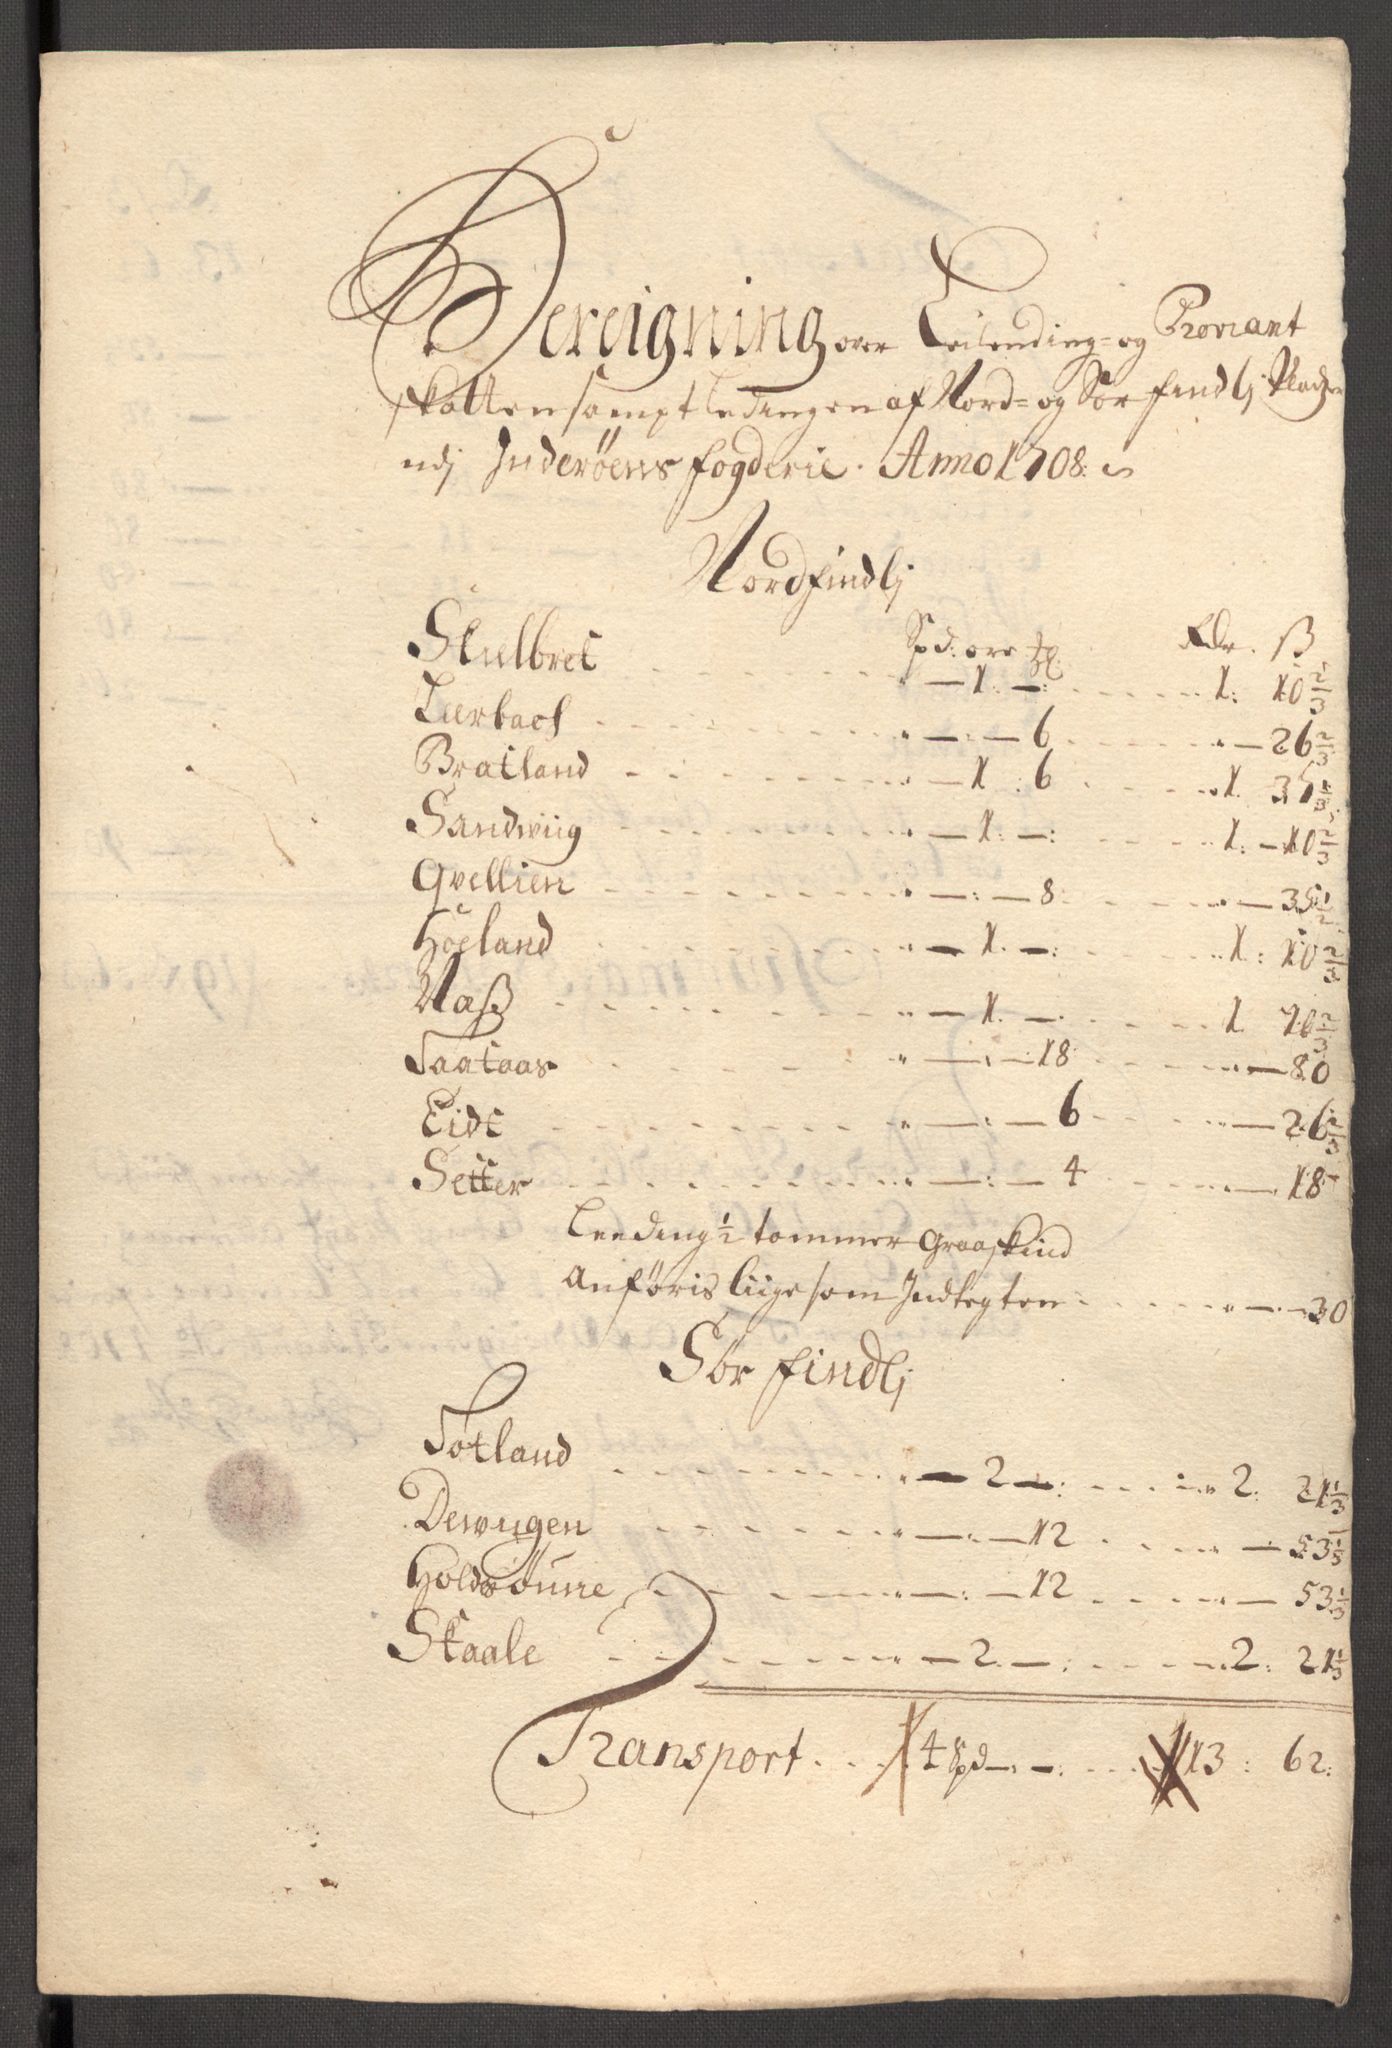 Bereigning over Leilending- og Proviant
skatten sampt Ledingen af Nord- og Sør findlj Pladzer
udj Inderöens fogderie. Anno 1708.
Nordfindlj
Spd: ore Mkl: Rdr. ß
Skulbret - 1. - 1: 10 2/3
Lurbach - 6 - 26 2/3
Bratland - 1 : 6 1. 37 1/3
Sandwiig - 1. - 1: 10 2/3
Qvellien - 8 - 35 1/2
Höeland - 1. - 1: 10 2/3
Naß - 1. - 1 10 2/3
Taataas - 18 - 80
Eidt - 6 - 26 2/3
Setter - 4 - 18
Leeding 1/2 tommer Graaskind
Anföris liige som Indtegten - 30
Sør findlj
Totland - 2 - 2: 21 1/3
Dewigen - 12 - 53 1/3
Holdsöune - 12 - 53 1/3
Skaale - 2 - 2: 21 1/3
Transport 4 Spd - 13 : 62: